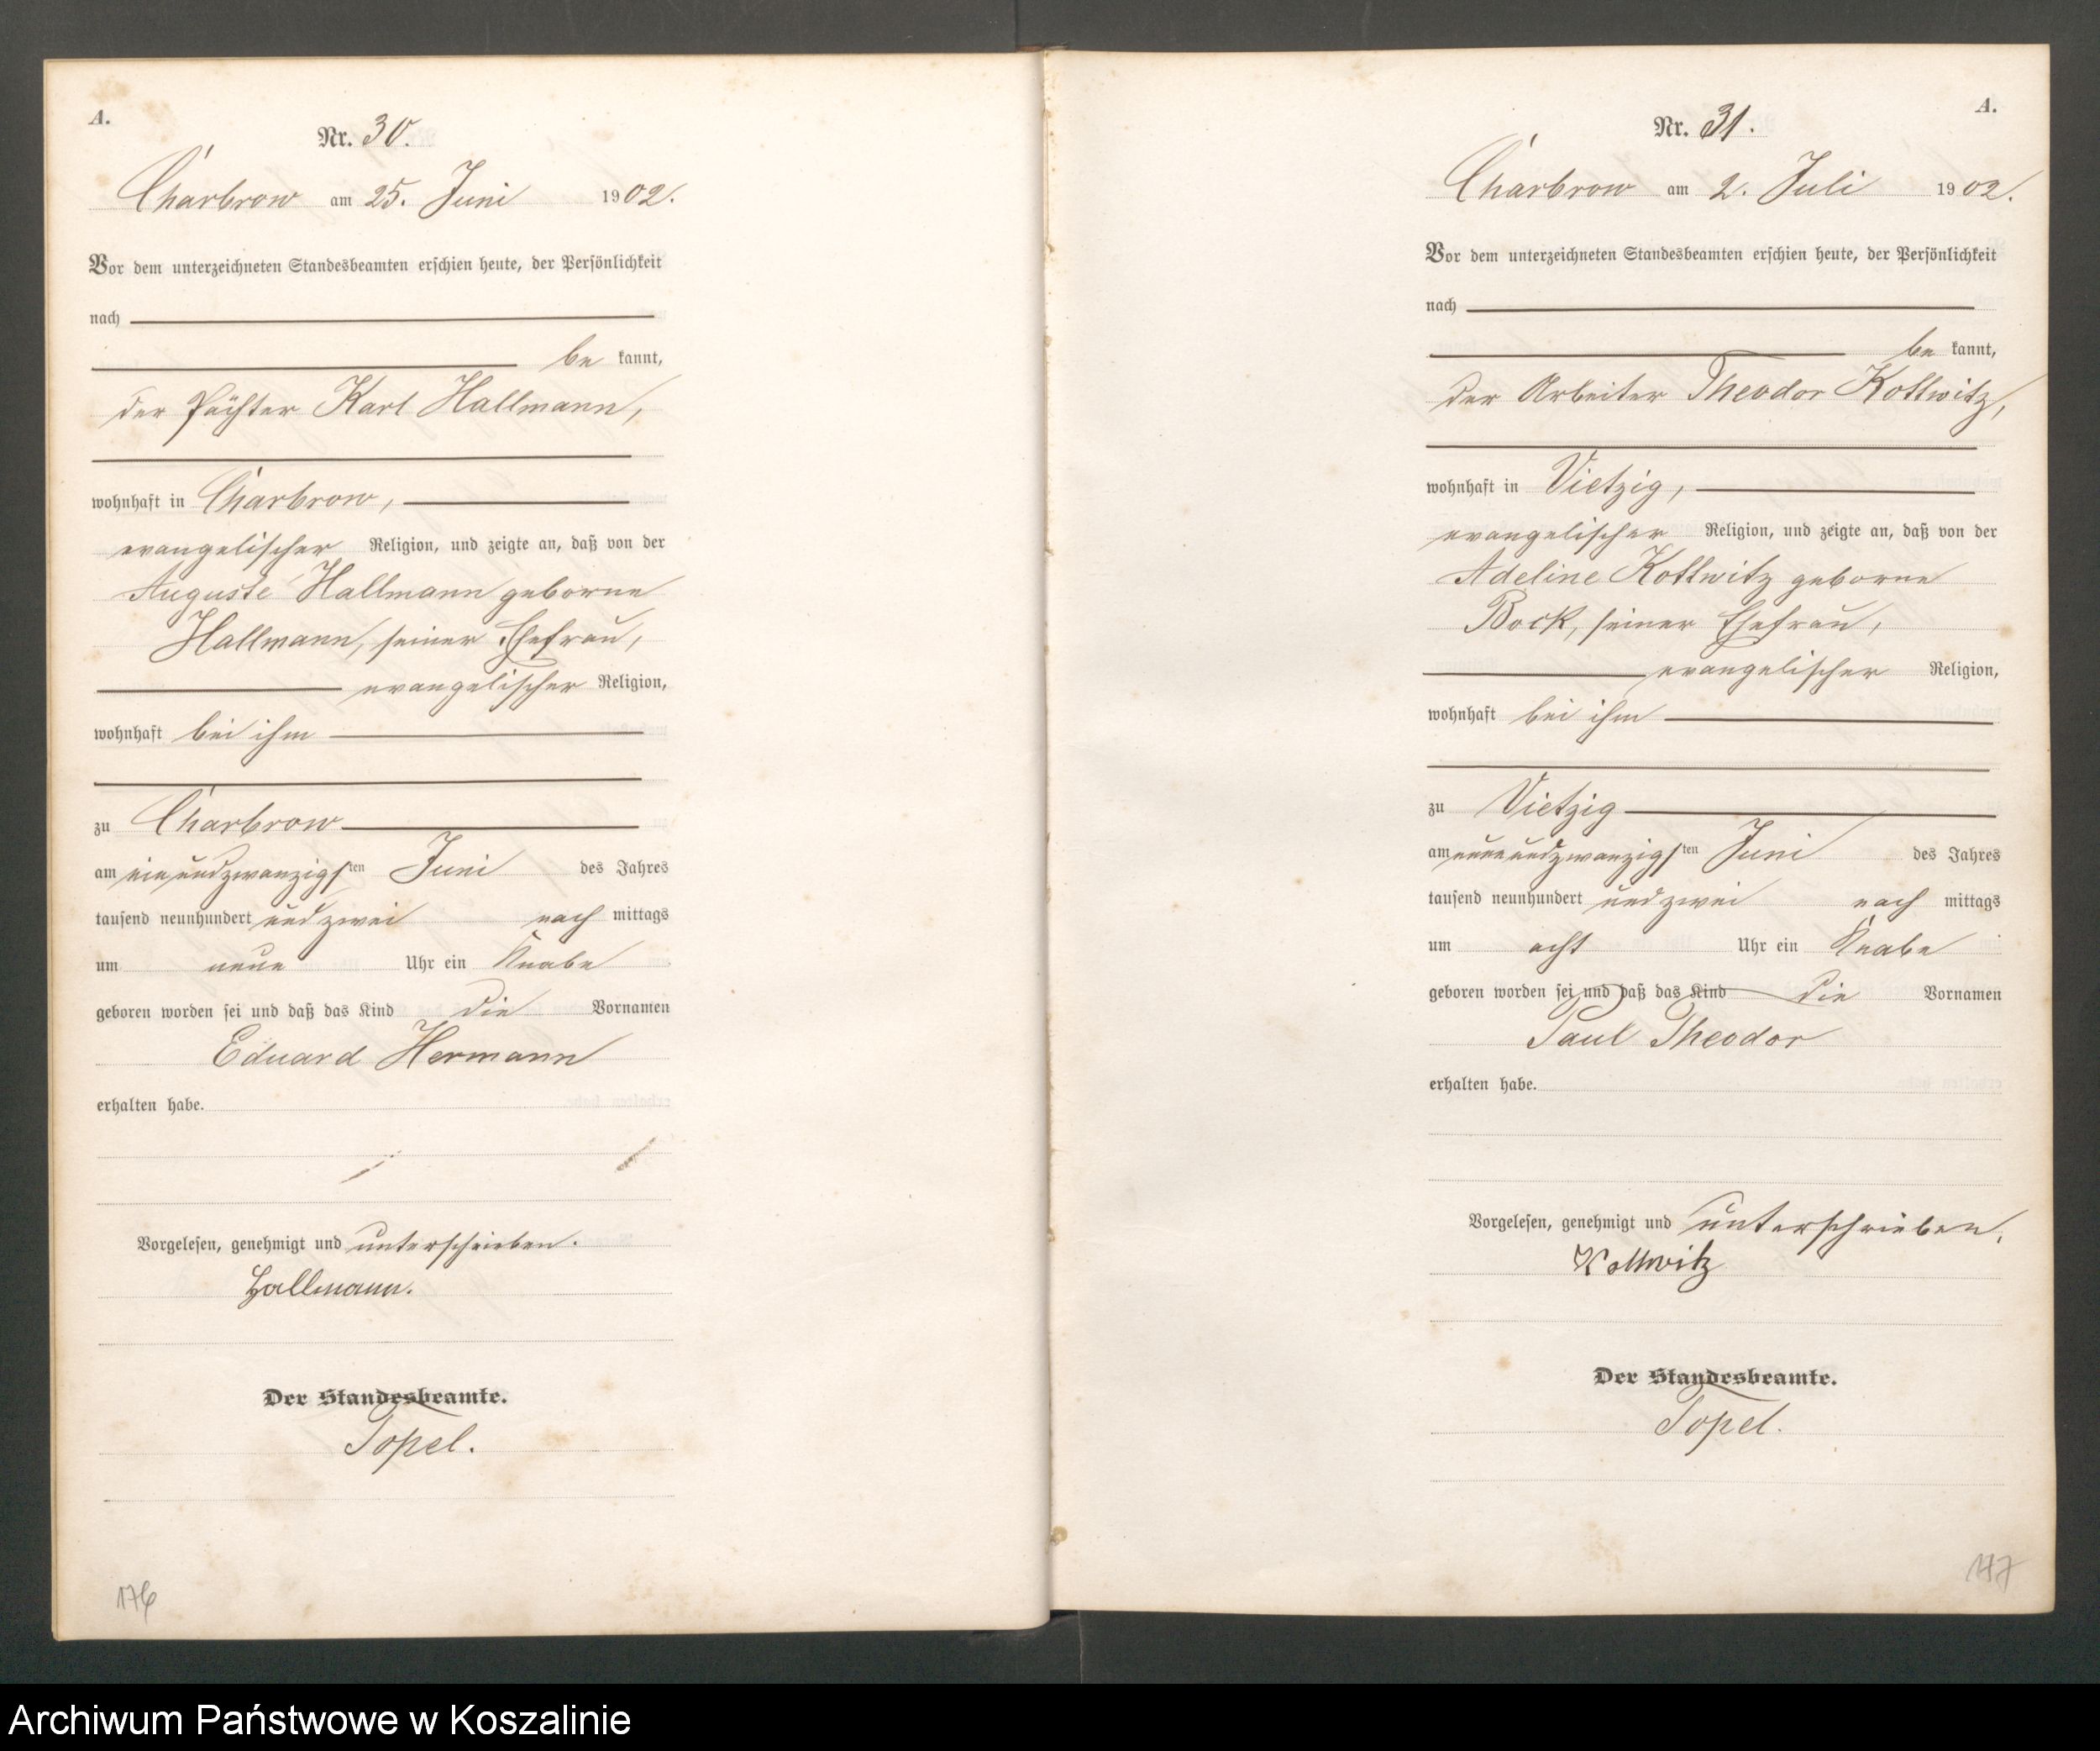 A.
Nr. 30.
Charbrow am 25. Juni 1902.
Vor dem unterzeichneten Standesbeamten erschien heute, der Persönlichkeit
nach
be kannt,
der Pächter Karl Hallmann,
wohnhaft in Charbrow,
evangelischer Religion, und zeigte an, daß von der
Auguste Hallmann geborne
Hallmann, seiner Ehefrau,
evangelischer Religion,
wohnhaft bei ihm
zu Charbrow
am einundzwanzigsten Juni des Jahres
tausend neunhundert und zwei nach mittags
um neun Uhr ein Knabe
geboren worden sei und daß das Kind die Vornamen
Eduard Hermann
erhalten habe.
Vorgelesen, genehmigt und unterschrieben.
Hallmann.
Der Standesbeamte.
Topel.
176
A.
Nr. 31.
Charbrow am 2. Juli 1902.
Vor dem unterzeichneten Standesbeamten erschien heute, der Persönlichkeit
nach
be kannt,
der Arbeiter Theodor Kottwitz,
wohnhaft in Vietzig,
evangelischer Religion, und zeigte an, daß von der
Adeline Kottwitz geborne
Bock, seiner Ehefrau,
evangelischer Religion,
wohnhaft bei ihm
zu Vietzig
am neunundzwanzigsten Juni des Jahres
tausend neunhundert und zwei nach mittags
um acht Uhr ein Knabe
geboren worden sei und daß das Kind die Vornamen
Paul Theodor
erhalten habe.
Vorgelesen, genehmigt und unterschrieben.
Kottwitz
Der Standesbeamte.
Topel.
177
Archiwum Państwowe w Koszalinie